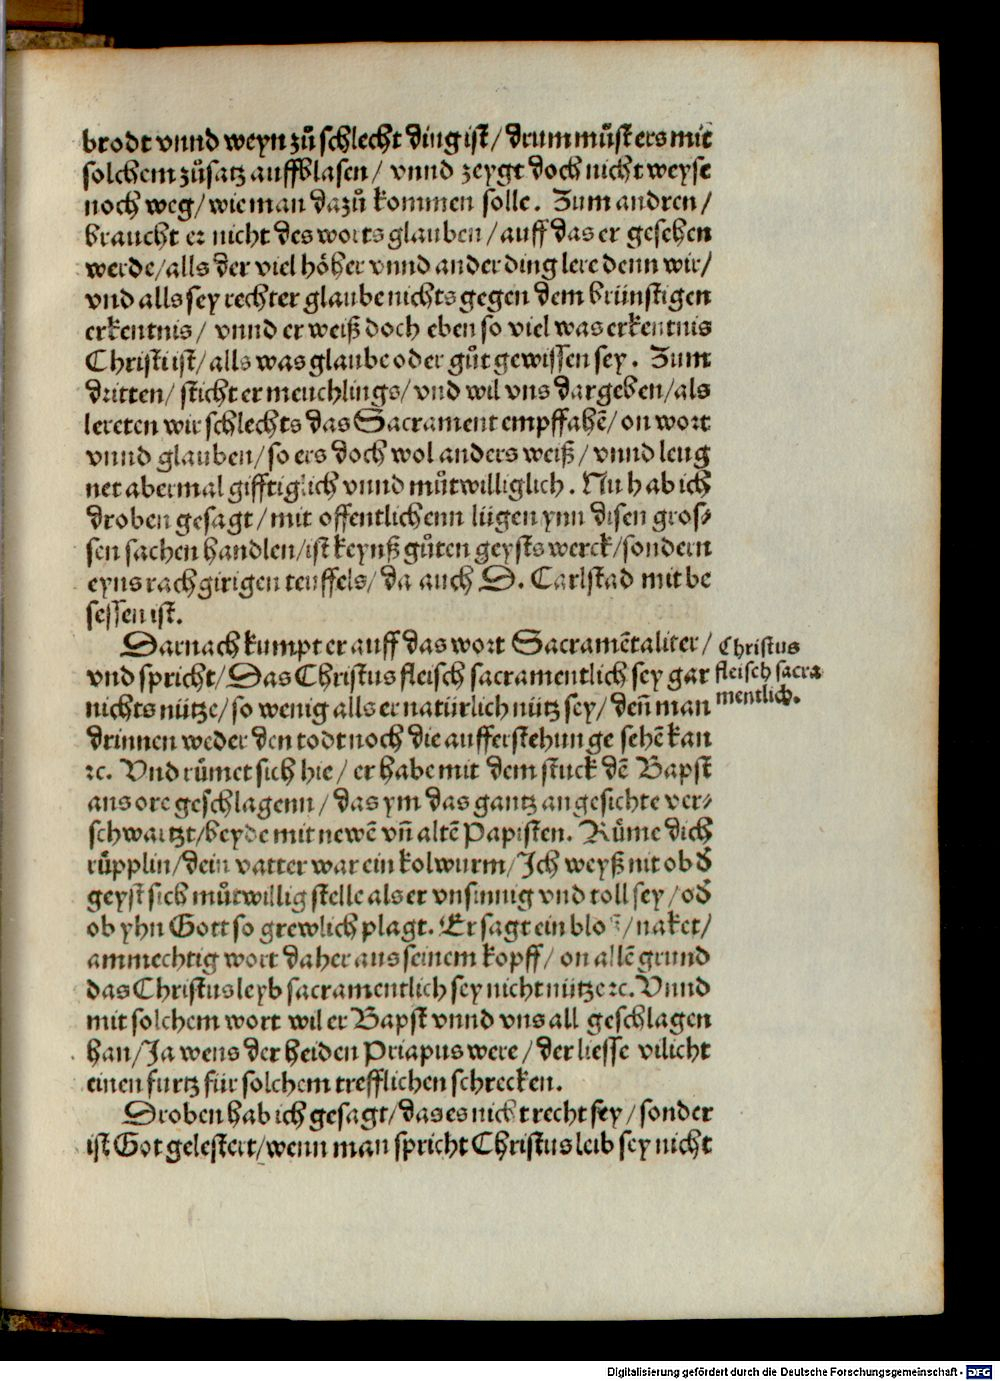 brodt vnnd weyn zů schlecht ding ist / drum můst ers mit
solchem zůsatz auffblasen / vnnd zeygt doch nicht weyse
noch weg / wie man dazů kommen solle. Zum andren /
braucht er nicht des worts glauben / auff das er gesehen
werde / alls der viel höher vnnd ander ding lere denn wir /
vnd alls sey rechter glaube nichts gegen dem brünstigen
erkentnis / vnnd er weiß doch eben so viel was erkentnis
Christi ist / alls was glaube oder gůt gewissen sey. Zum
dritten / sticht er meuchlings / vnd wil vns dargeben / als
lereten wir schlechts das Sacrament empffahē / on wort
vnnd glauben / so ers doch wol anders weiß / vnnd leug
net abermal gifftiglich vnnd můtwilliglich. Nu hab ich
droben gesagt / mit offentlichenn lügen ynn disen gros⸗
sen sachen handlen / ist keynß gůten geysts werck / sondern
eyns rachgirigen teuffels / da auch D. Carlstad mit be
sessen ist.
Darnach kumpt er auff das wort Sacramētaliter /
vnd spricht / Das Christus fleisch sacramentlich sey gar
nichts nütze / so wenig alls er natürlich nütz sey / deñ man
drinnen weder den todt noch die aufferstehunge sehē kan
ꝛc. Vnd růmet sich hie / er habe mit dem stuck dē Bapst
ans ore geschlagenn / das ym das gantz angesichte ver⸗
schwartzt / beyde mit newē vñ altē Papisten. Růme dich
růpplin / dein vatter war ein kolwurm / Ich weyß nit ob d̄
geyst sich můtwillig stelle als er vnsinnig vnd toll sey / od̄
ob yhn Gott so grewlich plagt. Er sagt ein bloß / naket /
ammechtig wort daher aus seinem kopff / on allē grund
das Christus leyb sacramentlich sey nicht nütze ꝛc. Vnnd
mit solchem wort wil er Bapst vnnd vns all geschlagen
han / Ja wens der heiden Priapus were / der liesse vilicht
einen furtz für solchem trefflichen schrecken.
Droben hab ich gesagt / das es nicht recht sey / sonder
ist Got gelestert / wenn man spricht Christus leib sey nicht
Christus
fleisch sacra
mentlich.
Digitalisierung gefördert durch die Deutsche Forschungsgemeinschaft - DFG